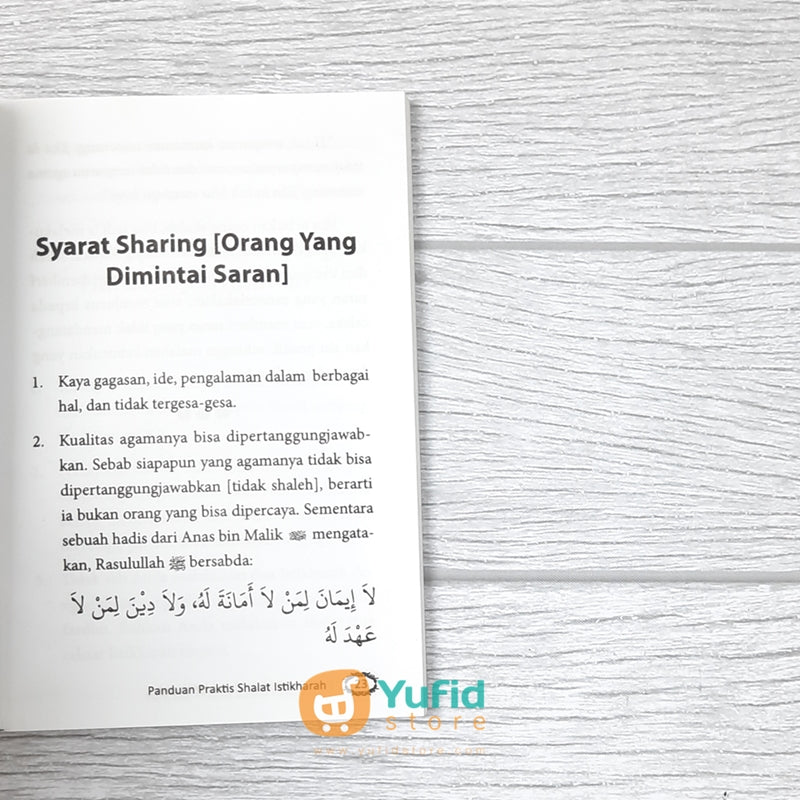 Syarat Sharing [Orang Yang
Dimintai Saran]
1. Kaya gagasan, ide, pengalaman dalam berbagai
hal, dan tidak tergesa-gesa.
2. Kualitas agamanya bisa dipertanggungjawab-
kan. Sebab siapapun yang agamanya tidak bisa
dipertanggungjawabkan [tidak shaleh], berarti
ia bukan orang yang bisa dipercaya. Sementara
sebuah hadis dari Anas bin Malik mengata-
kan, Rasulullah ﷺ bersabda:
لاَ إِيمَانَ لِمَنْ لاَ أَمَانَةَ لَهُ، وَلاَ دِيْنَ لِمَنْ لاَ
عَهْدَ لَهُ
Panduan Praktis Shalat Istikharah 23
Yufid
store
www.yufidstore.com